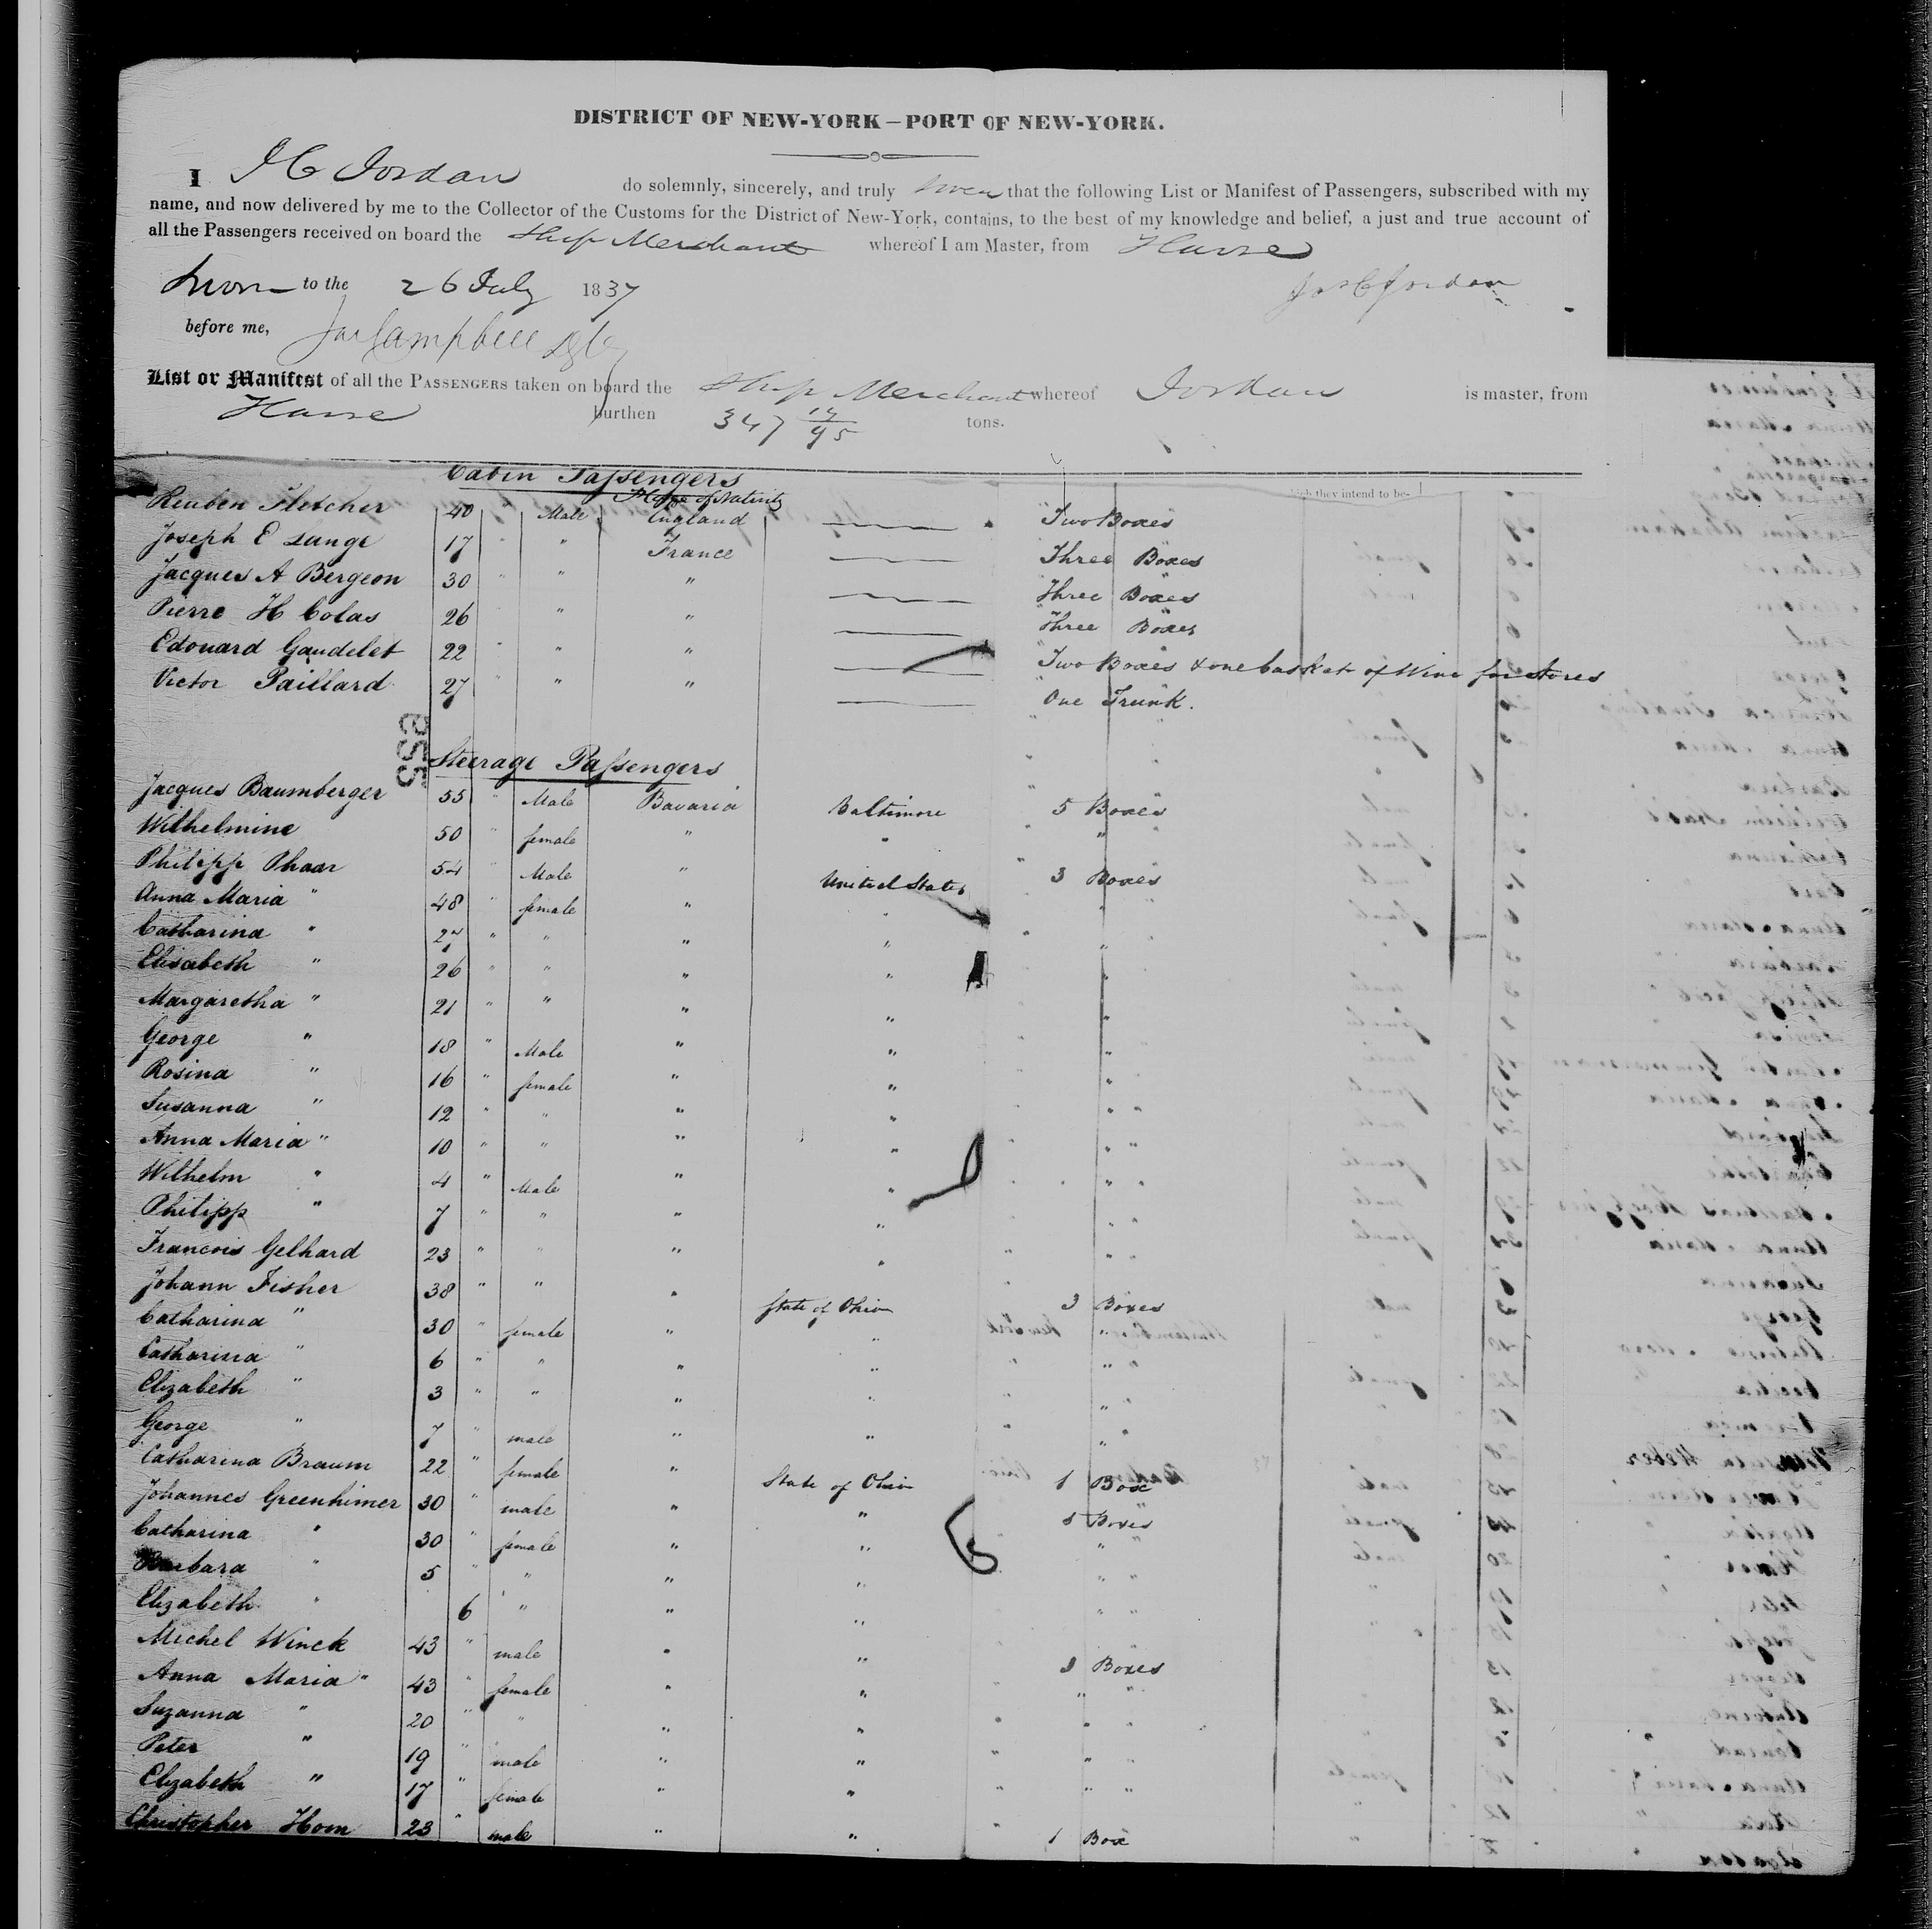 DISTRICT OF NEW-YORK—PORT OF NEW-YORK.
I J C Jordan do solemnly, sincerely, and truly swear that the following List or Manifest of Passengers, subscribed with my
name, and now delivered by me to the Collector of the Customs for the District of New-York, contains, to the best of my knowledge and belief, a just and true account of
all the Passengers received on board the Ship Merchant whereof I am Master, from Havre
Sworn to the 26 July 1837 Jas C Jordan
before me, Jas Campbell
List or Manifest of all the PASSENGERS taken on board the Ship Merchant whereof Jordan is master, from
Havre burthen 347 14/95 tons.
Cabin Passengers
Place of Nativity
which they intend to be-
Reuben Fletcher 40 " Male England — Two Boxes
Joseph E Lange 17 " " France — Three Boxes
Jacques A Bergeon 30 " " " — Three Boxes
Pierre H Colas 26 " " — Three Boxes
Edouard Gaudelet 22 " " " — Two Boxes & one basket of Wine for stores
Victor Paillard 27 " " " — One Trunk.
655
Steerage Passengers
Jacques Baumberger 55 " Male Bavaria Baltimore 5 Boxes
Wilhelmine 50 " female " " "
Philipp Phaar 54 " Male " United States 3 Boxes
Anna Maria " 48 " female " " "
Catharina " 27 " " " " "
Elisabeth " 26 " " " " "
Margaretha " 21 " " " " "
George " 18 " Male " " "
Rosina " 16 " female " " "
Susanna " 12 " " " " " "
Anna Maria " 10 " " " " " "
Wilhelm " 4 " Male " " " "
Philipp " 7 " " " " " "
Francois Gelhard 23 " " " " " "
Johann Fisher 38 " " " State of Ohio 3 Boxes
Catharina " 30 " female " " "
Catharina " 6 " " " " " "
Elizabeth " 3 " " " " " "
George " 7 " male " " " "
Catharina Braum 22 " female " State of Ohio 1 Box
Johannes Greenhimer 30 " male " " 5 Boxes
Catharina " 30 " female " " "
Barbara " 5 " " " " " "
Elizabeth " 6 " " " " "
Michel Winck 43 " male " " 3 Boxes
Anna Maria " 43 " female " " " "
Suzanna " 20 " " " " " "
Peter " 19 " male " " " "
Elizabeth " 17 " female " " " "
Christopher Hom 23 " male " " 1 Box